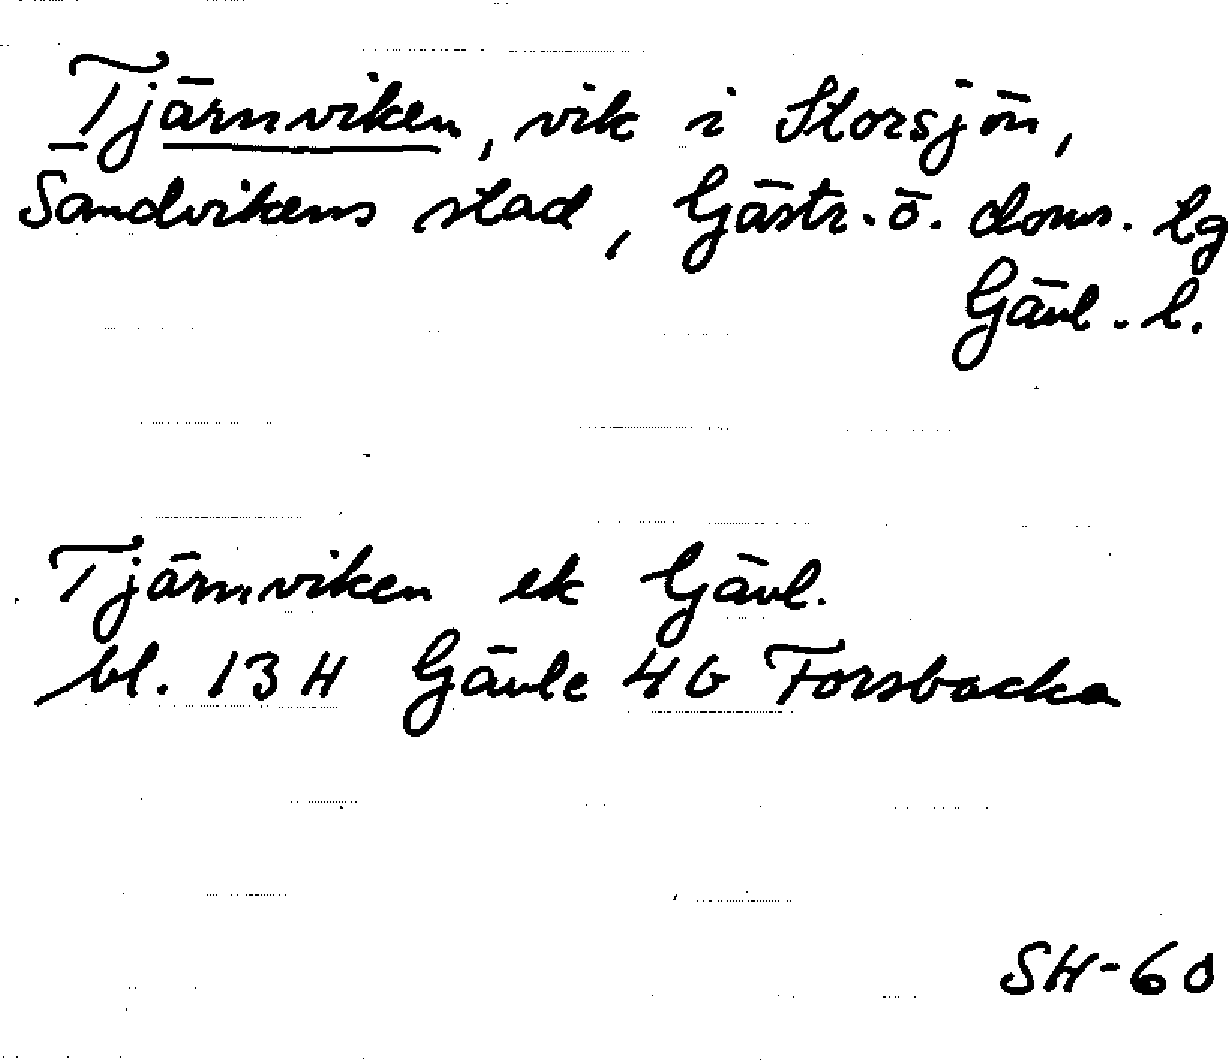 Tjärnviken, vik i Storsjön,
Sandvikens stad, Gästr. ö. doms. lg
Gävl. l.
Tjärnviken ek Gävl.
bl. 13 H Gävle 4b Forsbacka
SH-60